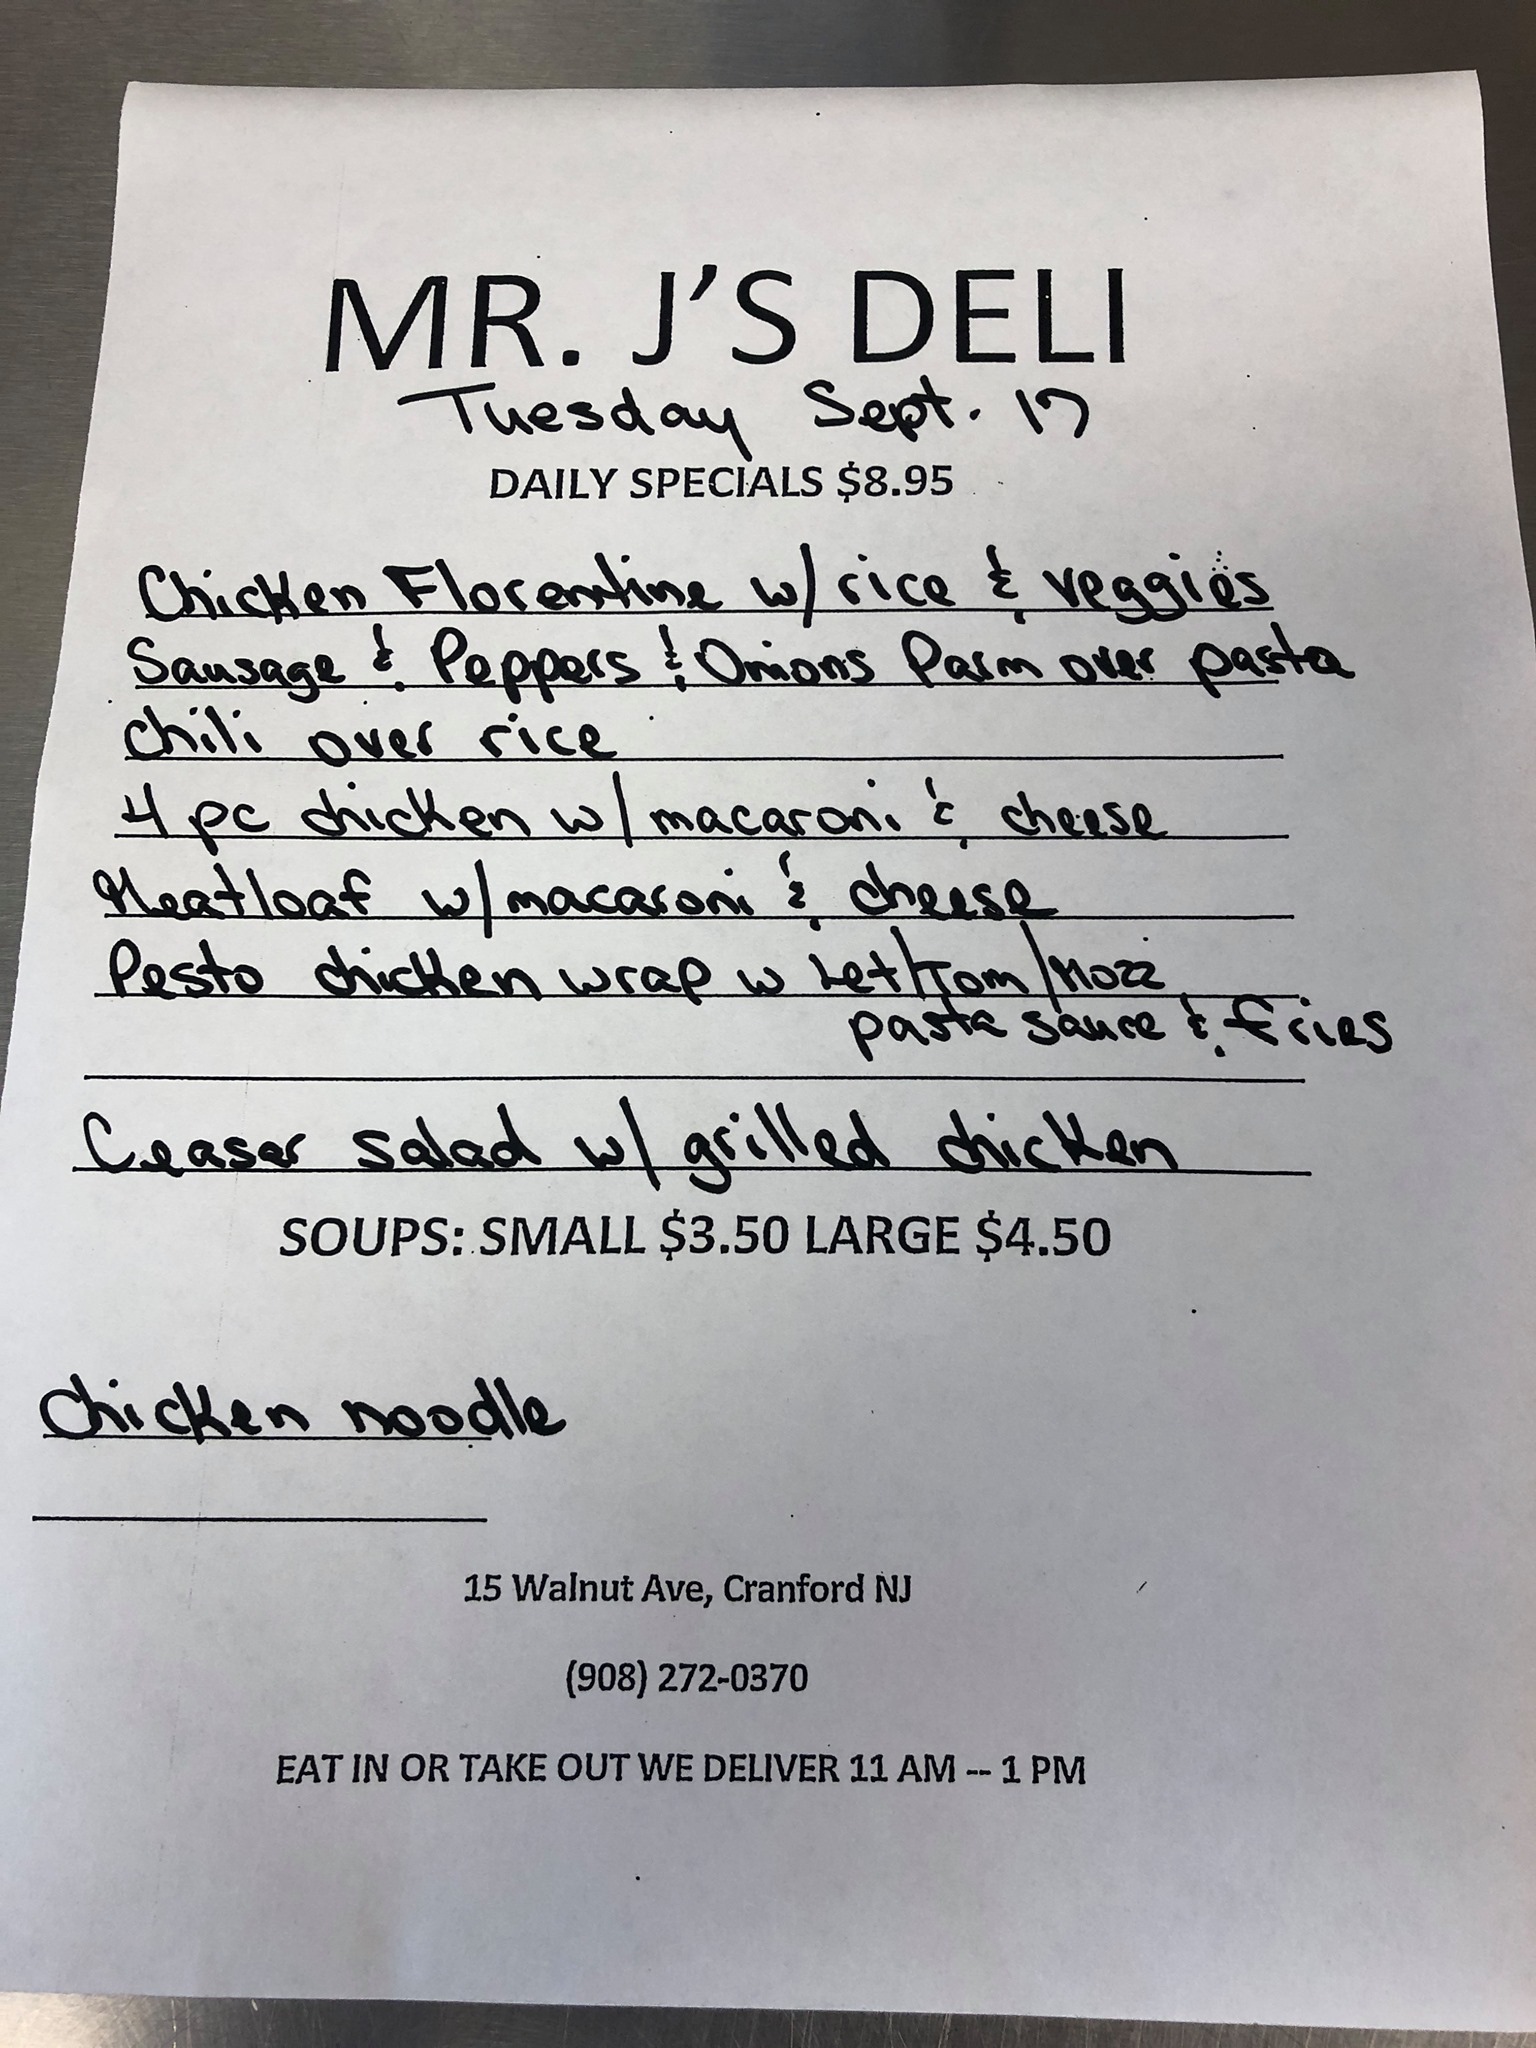 MR. J'S DELI
Tuesday Sept. 17
DAILY SPECIALS $8.95
Chicken Florentine w/ rice & veggies
Sausage & Peppers & Onions Parm over pasta
Chili over rice
4 pc chicken w/ macaroni & cheese
Meatloaf w/ macaroni & cheese
Pesto chicken wrap w Let/Tom/Mozz
pasta sauce & fries
Ceaser salad w/ grilled chicken
SOUPS: SMALL $3.50 LARGE $4.50
Chicken noodle
15 Walnut Ave, Cranford NJ
(908) 272-0370
EAT IN OR TAKE OUT WE DELIVER 11 AM -- 1 PM